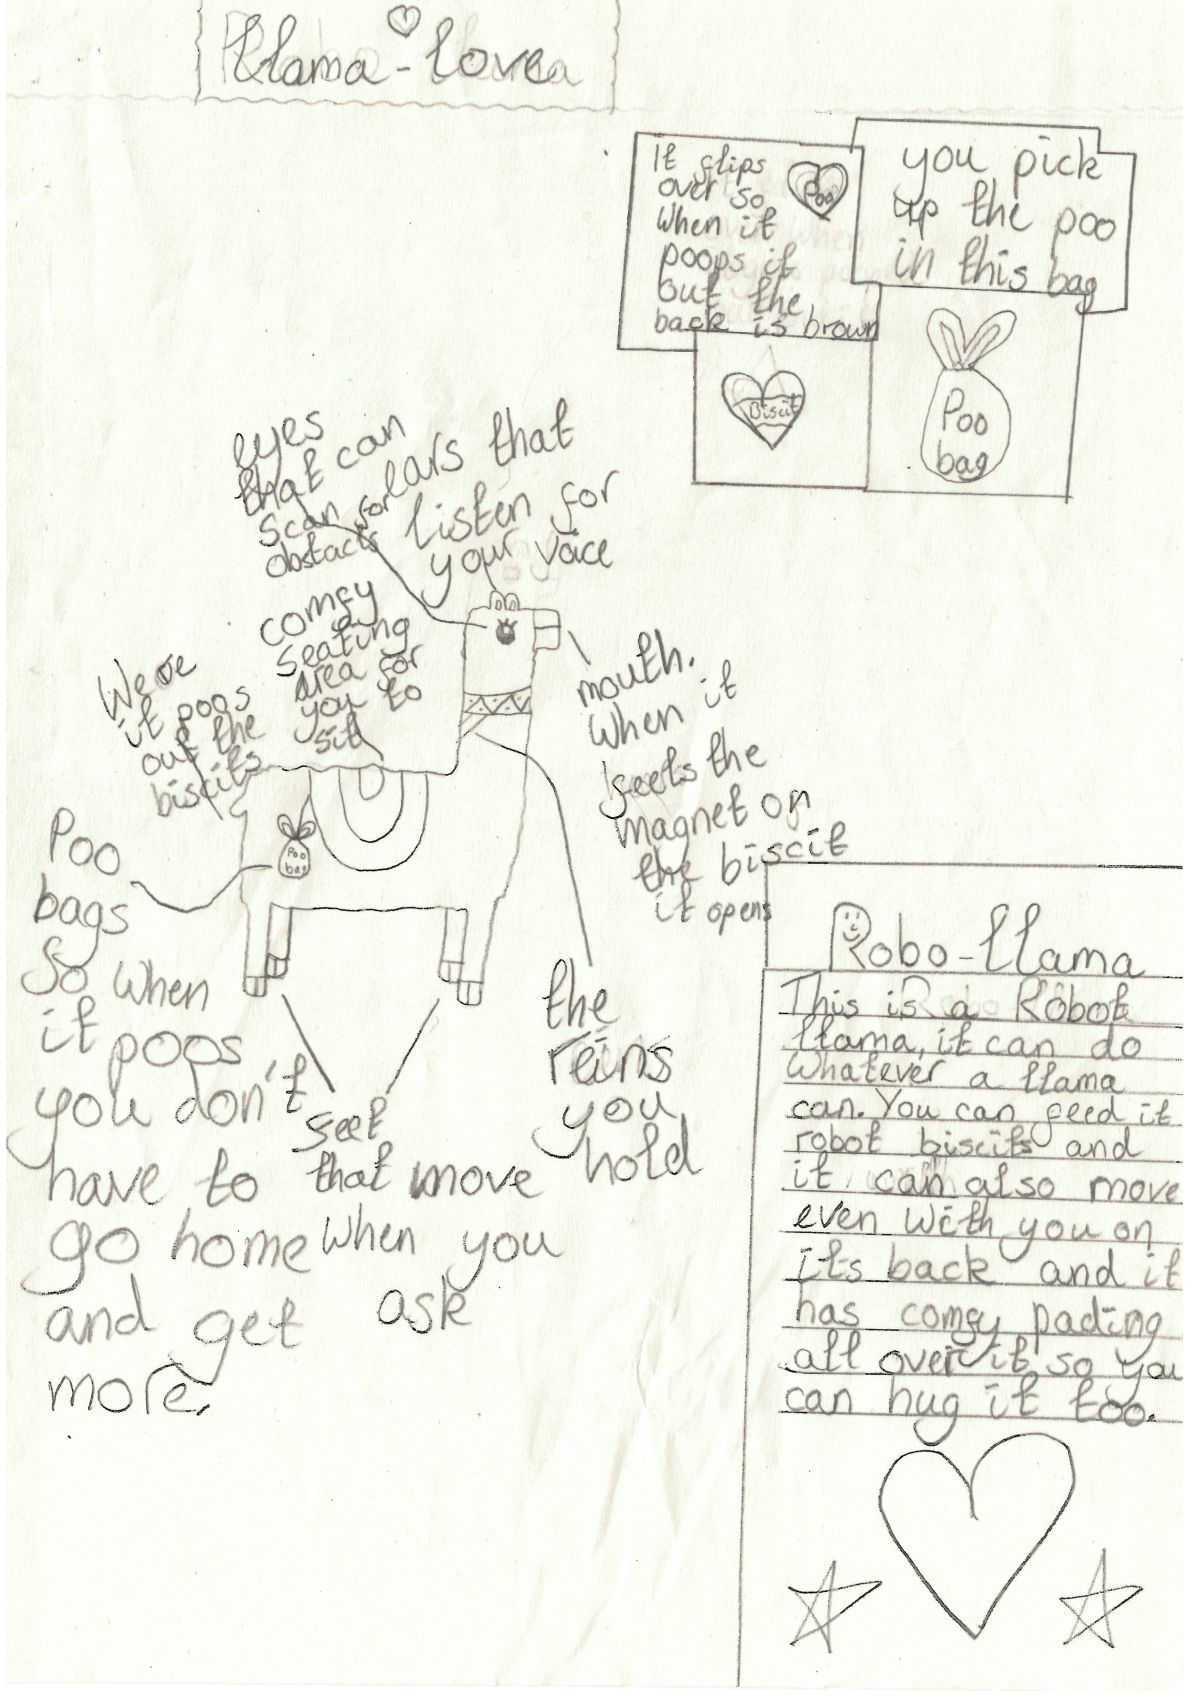 llama-love
It flips
over so
when it
poops it
out the
back is brown
Poo
you pick
up the poo
in this bag
Biscit
Poo
bag
eyes
that can
scan for
obstacls
ears that
listen for
your voice
comfy
seating
area for
you to
sit
it poos
out the
biscits
mouth.
When it
feels the
magnet on
the biscit
it opens
Poo
bag
Poo
bags
So when
it poos
you don't
have to
go home
and get
more.
feet
that move
when you
ask
the
reins
you
hold
Robo-llama
This is a Robot
llama, it can do
whatever a llama
can. You can feed it
robot biscits and
it can also move
even with you on
its back and it
has comfy pading
all over it so you
can hug it too.